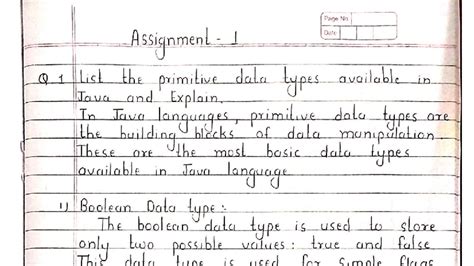 Page No.
Date
Assignment - 1
Q 1 List the primitive data types available in
Java and Explain.
In Java languages, primitive data types are
the building blocks of data manipulation
These are the most basic data types
available in Java language
1) Boolean Data type :-
The boolean data type is used to store
only two possible values : true and false
This data type is used for simple flags